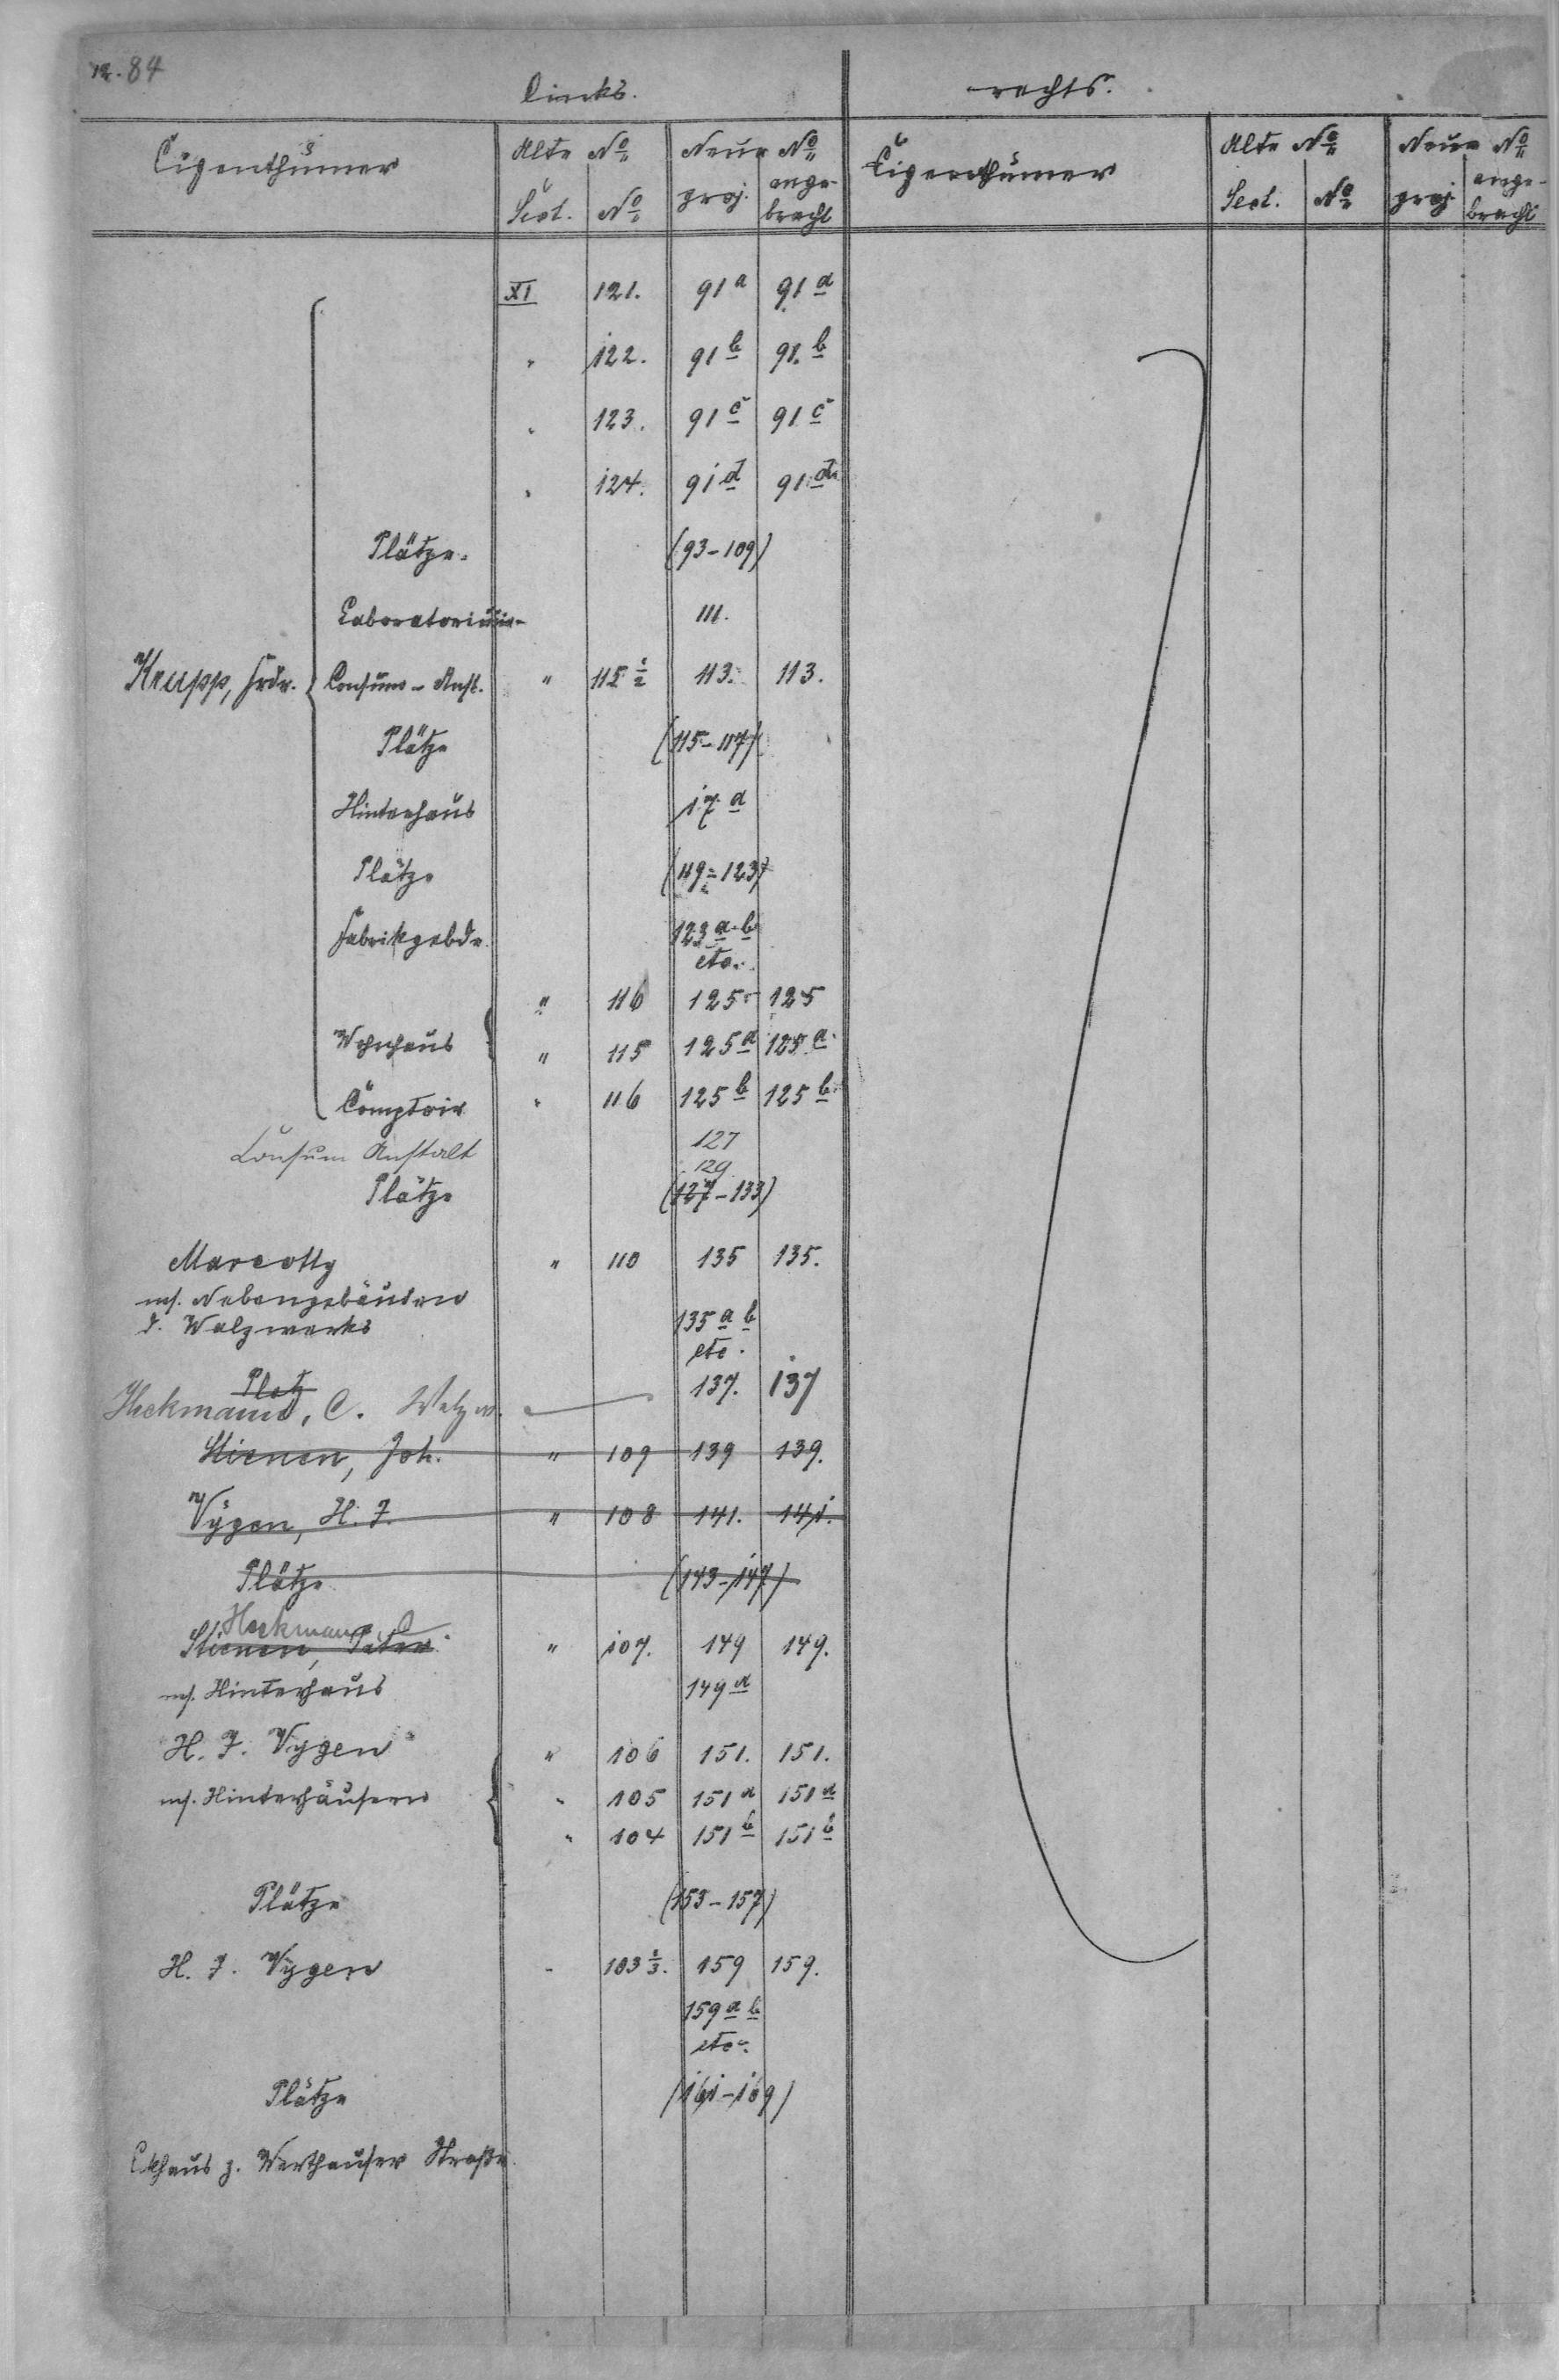 84
Links.
rechts.
Eigenthümer Alte No Neue No Eigenthümer Alte No Neue No
Sect. No proj. ange-bracht Sect. No proj ange-bracht
XI 121. 91a 91a
" 122. 91b 91.b
" 123. 91c 91c
" 124. 91d 91d
Plätze. (93-109)
Laboratorium 111.
Krupp, Frdr. Consum-Anst. " 115 1/2 113. 113.
Plätze (115-117)
Hinterhaus 17a
Plätze (119-123)
Fabrikgebde. 123 a b
etc.
" 116 125 125
Wohnhaus " 115 125a 125a
Comptoir " 116 125b 125b
Consum Anstalt 127
129
Plätze (127-133)
Marcotty " 110 135 135.
ms. Nebengebäuden
d. Walzwerks 135 a b
etc.
Platz 137. 137
Heckmann, C. Walzw.
Stienen, Joh. " 109 139 139.
Vygen, H. J. " 108 141. 141.
Plätze (143-147)
Heckmann, C
Stienen, Peter " 107. 149 149.
ms. Hinterhaus 149a
H. J. Vygen " 106 151. 151.
ms. Hinterhäusern " 105 151a 151a
" 104 151b 151b
Plätze (153-157)
H. J. Vygen " 103 1/3. 159 159.
159 a b
etc.
Plätze (161-169)
Eckhaus z. Werthauser Straße